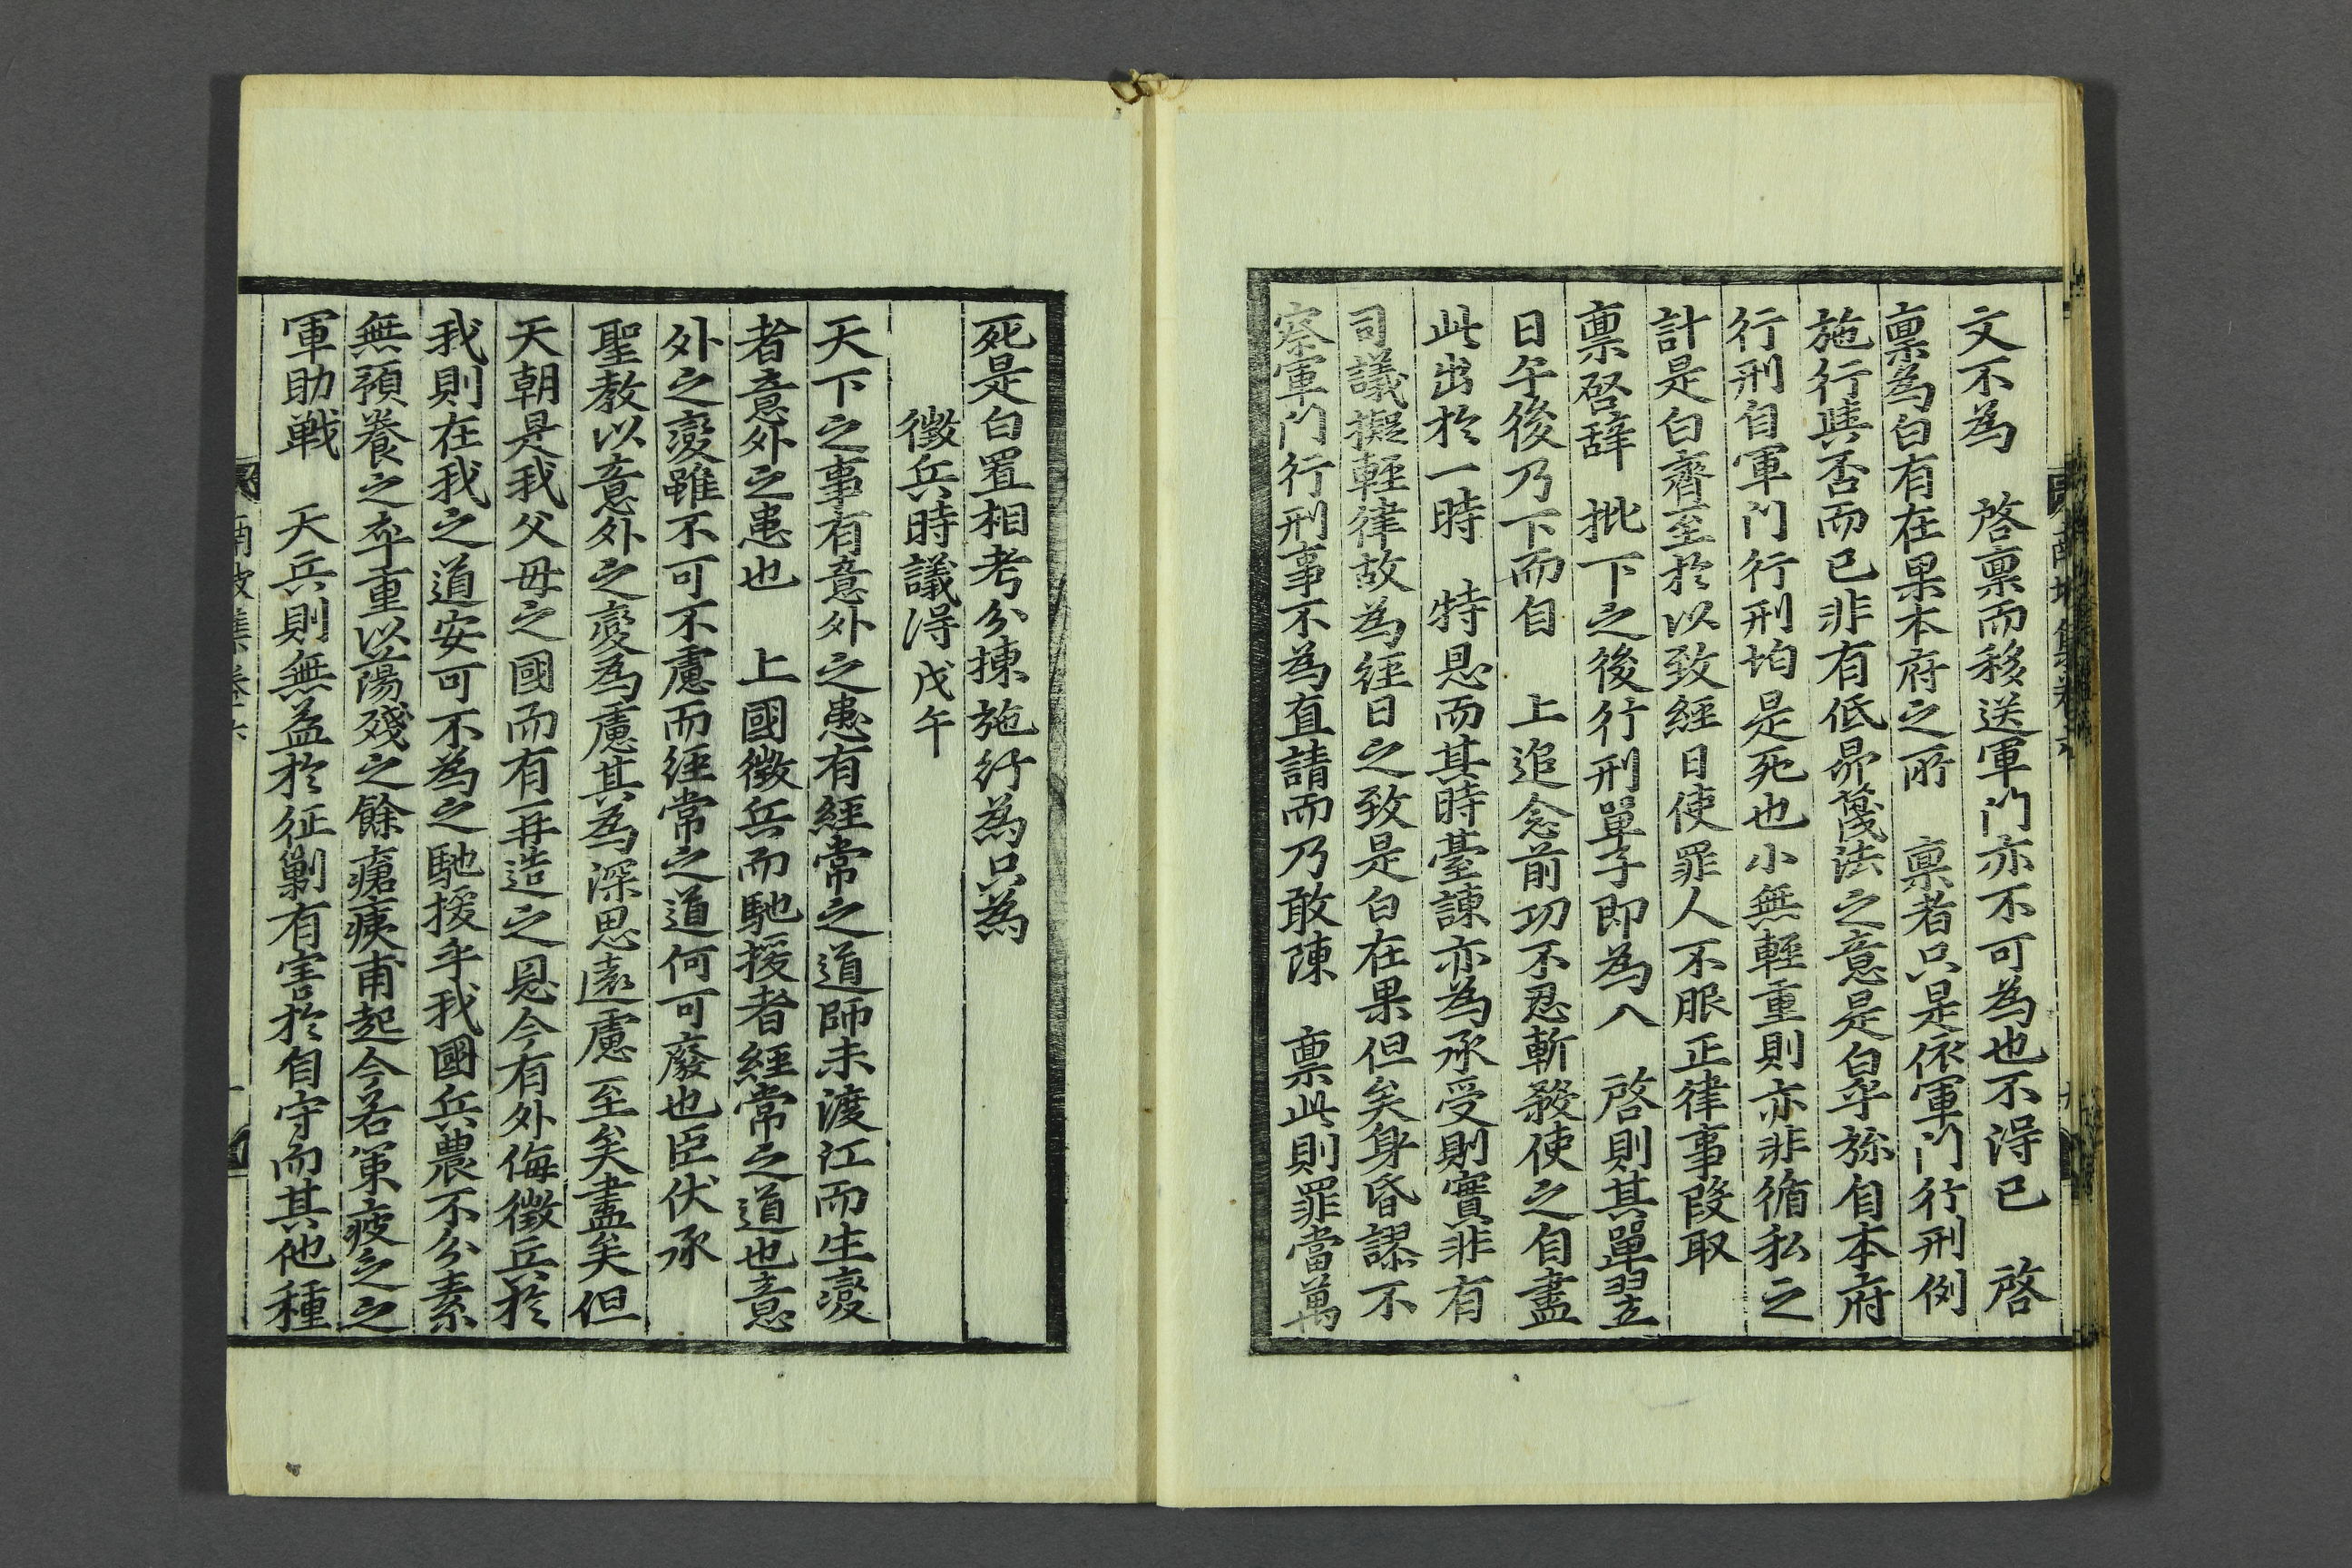 文不為　啓禀而移送軍門亦不可為也不得已　啓
禀為白有在果本府之所　禀者只是依軍門行刑例
施行與否而已非有低昻蔑法之意是白乎㫆自本府
行刑自軍門行刑均是死也小無輕重則亦非循私之
計是白齊至於以致經日使罪人不服正律事段取
禀啓辞　批下之後行刑單子即為入　啓則其單翌
日午後乃下而自　上追念前功不忍斬發使之自盡
此出於一時　特恩而其時臺諫亦為承受則實非有
司議擬輕律故為經日之致是白在果但矣身昏謬不
察軍門行刑事不為直請而乃敢陳　禀此則罪當萬
死是白置相考分揀施行為只為
徵兵時議得戊午
天下之事有意外之患有經常之道師未渡江而生變
者意外之患也　上國徵兵而馳援者經常之道也意
外之變雖不可不慮而經常之道何可廢也臣伏承
聖教以意外之變為慮其為深思遠慮至矣盡矣但
天朝是我父母之國而有再造之恩今有外侮徵兵於
我則在我之道安可不為之馳援乎我國兵農不分素
無預養之卒重以蕩殘之餘瘡痍甫起今若策疲乏之
軍助戰　天兵則無益於征剿有害於自守而其他種
南坡集卷六